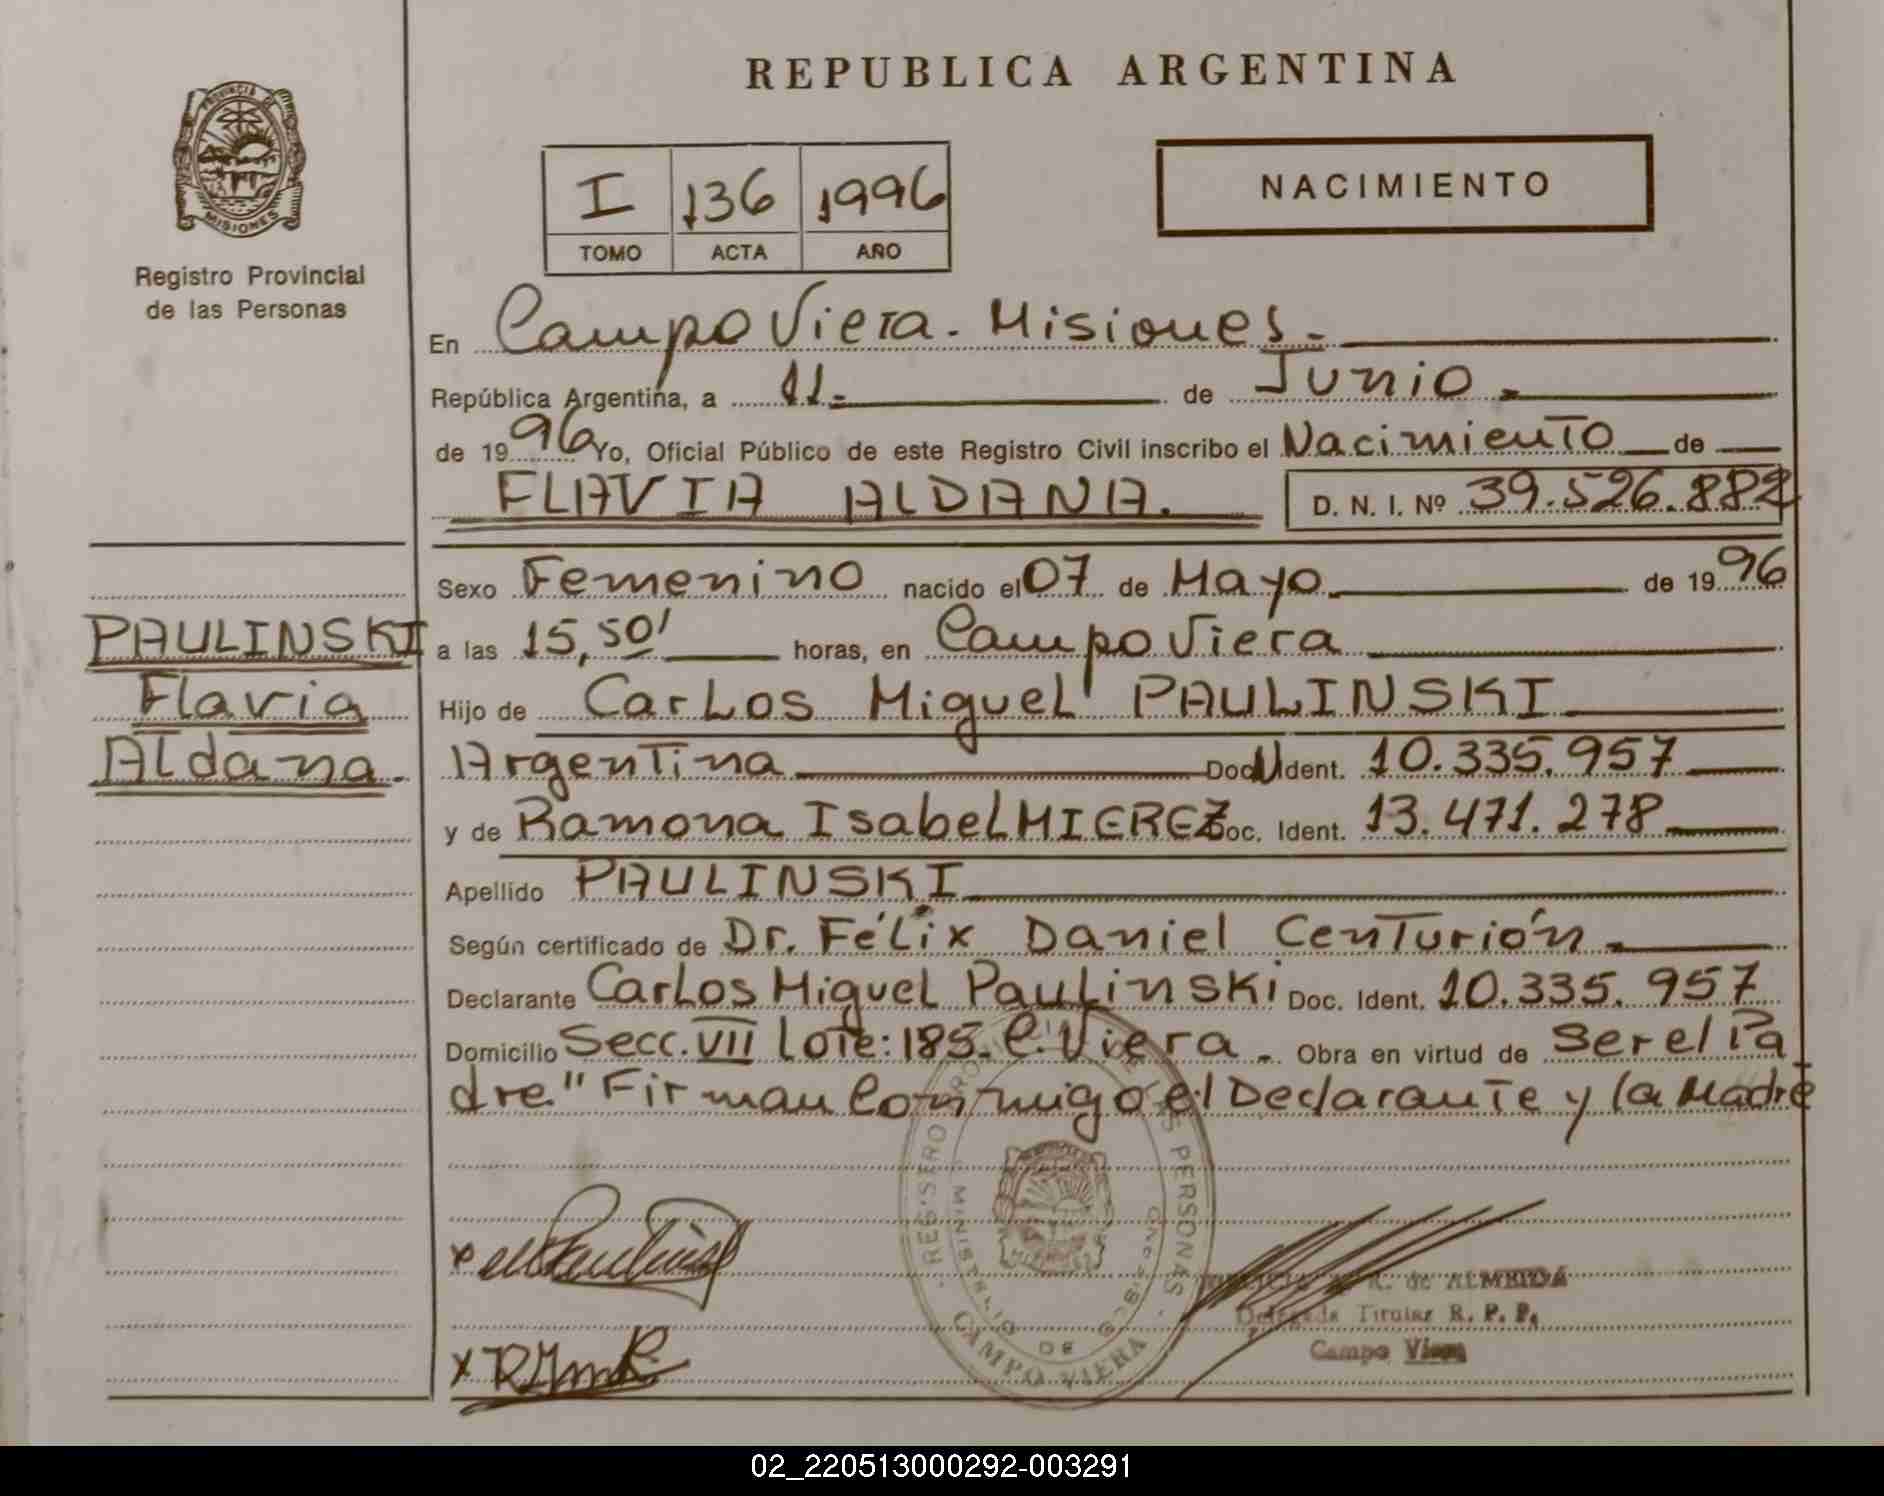 REPUBLICA ARGENTINA
PROVINCIA DE MISIONES
Registro Provincial
de las Personas
I 136 1996
TOMO ACTA AÑO
NACIMIENTO
En Campo Viera. Misiones.
República Argentina, a 11. de Junio.
de 1996 Yo, Oficial Público de este Registro Civil inscribo el Nacimiento de
FLAVIA ALDANA. D. N. I. Nº 39.526.882
Sexo Femenino nacido el 07 de Mayo. de 1996
PAULINSKI
Flavia
Aldana.
a las 15,50' horas, en Campo Viera
Hijo de Carlos Miguel PAULINSKI
Argentina Doc. Ident. 10.335.957
y de Ramona Isabel MIEREZ Doc. Ident. 13.471.278
Apellido PAULINSKI
Según certificado de Dr. Félix Daniel Centurión.
Declarante Carlos Miguel Paulinski Doc. Ident. 10.335.957
Domicilio Secc. VII Lote: 185. C. Viera. Obra en virtud de Ser el Pa
dre" Firman Conmigo el Declarante y la Madre
REGISTRO PERSONAS
MINISTERIO DE
CAMPO VIERA
R. de ALMEIDA
Delegada Titular R. P. P.
Campo Viera
02_220513000292-003291